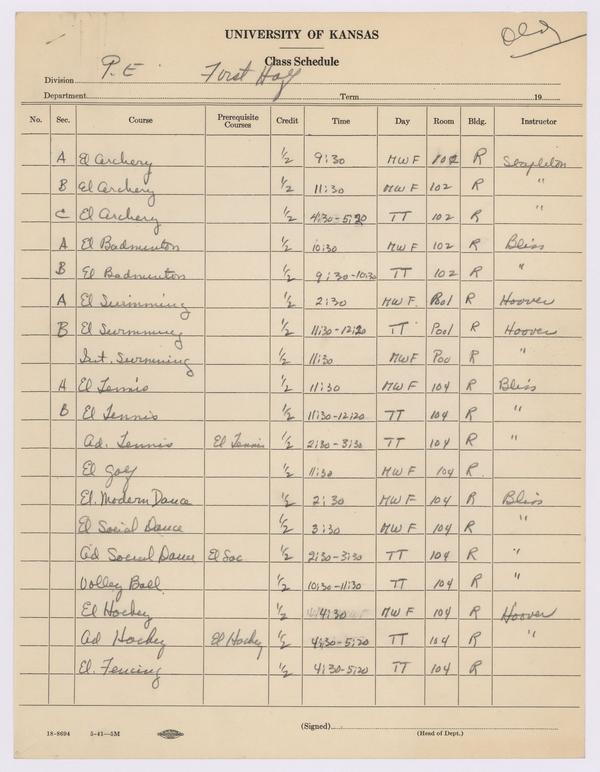 Old
UNIVERSITY OF KANSAS
Class Schedule
Division P.E First Half
Department Term 19
No. Sec. Course Prerequisite Courses Credit Time Day Room Bldg. Instructor
A El Archery 1/2 9:30 MWF 102 R Stapleton
B El Archery 1/2 11:30 MWF 102 R "
C El Archery 1/2 4:30-5:20 TT 102 R "
A El Badminton 1/2 10:30 MWF 102 R Bliss
B El Badminton 1/2 9:30-10:30 TT 102 R "
A El Swimming 1/2 2:30 MWF Pool R Hoover
B El Swimming 1/2 11:30-12:20 TT Pool R Hoover
Int. Swimming 1/2 11:30 MWF Poo R "
A El Tennis 1/2 11:30 MWF 104 R Bliss
B El Tennis 1/2 11:30-12:20 TT 104 R "
Ad. Tennis El Tennis 1/2 2:30-3:30 TT 104 R "
El Golf 1/2 11:30 MWF 104 R.
El. Modern Dance 1/2 2:30 MWF 104 R Bliss
El Social Dance 1/2 3:30 MWF 104 R "
Ad Social Dance El Soc 1/2 2:30-3:30 TT 104 R "
Volley Ball 1/2 10:30-11:30 TT 104 R "
El Hockey 1/2 4:30 MWF 104 R Hoover
Ad Hockey El Hockey 1/2 4:30-5:20 TT 104 R "
El. Fencing 1/2 4:30-5:20 TT 104 R
(Signed)
18-8694 5-41-5M (Head of Dept.)